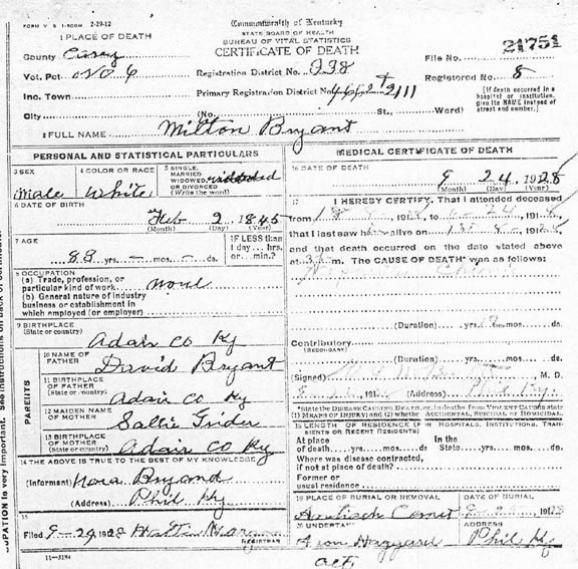 FORM V. S. 2-29-12
Commonwealth of Kentucky
STATE BOARD OF HEALTH
BUREAU OF VITAL STATISTICS
CERTIFICATE OF DEATH
1 PLACE OF DEATH
County Casey
Vot. Pct. No 6
Inc. Town
City
File No. 21751
Registration District No. 238
Registered No. 8
Primary Registration District No. 2111
(No. St., Ward)
[If death occurred in a hospital or institution, give its NAME instead of street and number.]
2 FULL NAME Milton Bryant
PERSONAL AND STATISTICAL PARTICULARS
3 SEX
Male
4 COLOR OR RACE
White
5 SINGLE, MARRIED, WIDOWED, OR DIVORCED
(Write the word)
widowed
6 DATE OF BIRTH
Feb 2 1845
(Month) (Day) (Year)
7 AGE
83 yrs. - mos. - ds.
IF LESS than
1 day hrs.
or min.?
8 OCCUPATION
(a) Trade, profession, or
particular kind of work none
(b) General nature of industry
business or establishment in
which employed (or employer)
9 BIRTHPLACE
(State or country)
Adair Co Ky
PARENTS
10 NAME OF
FATHER
David Bryant
11 BIRTHPLACE
OF FATHER
(State or country)
Adair Co Ky
12 MAIDEN NAME
OF MOTHER
Sallie Grider
13 BIRTHPLACE
OF MOTHER
(State or country)
Adair Co Ky
14 THE ABOVE IS TRUE TO THE BEST OF MY KNOWLEDGE
(Informant) Nora Bryand
(Address) Phil Ky
15
Filed 9-29 1928 Hattie
REGISTRAR
11-3184
MEDICAL CERTIFICATE OF DEATH
16 DATE OF DEATH
9 24 1928
(Month) (Day) (Year)
17 I HEREBY CERTIFY, That I attended deceased
from
that I last saw h alive on
and that death occurred on the date stated above
at m. The CAUSE OF DEATH* was as follows:
(Duration) yrs. mos. ds.
Contributory
(SECONDARY)
(Duration) yrs. mos. ds.
(Signed) M. D.
(Address) Phil Ky.
*State the DISEASE CAUSING DEATH, or, in deaths from VIOLENT CAUSES state
(1) MEANS OF INJURY; and (2) whether ACCIDENTAL, SUICIDAL or HOMICIDAL.
18 LENGTH OF RESIDENCE (FOR HOSPITALS, INSTITUTIONS, TRANSIENTS OR RECENT RESIDENTS)
At place
of death yrs. mos. ds.
In the
State yrs. mos. ds.
Where was disease contracted,
if not at place of death?
Former or
usual residence
19 PLACE OF BURIAL OR REMOVAL
DATE OF BURIAL
20 UNDERTAKER
ADDRESS
Phil Ky